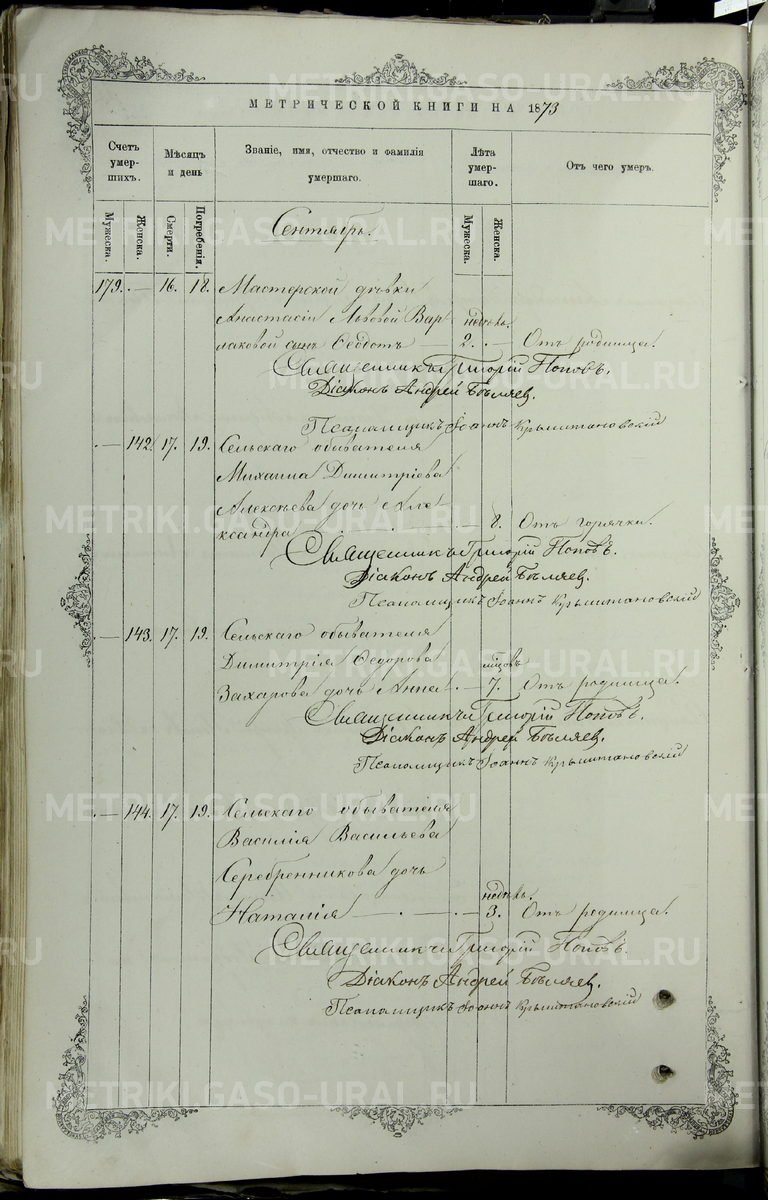 МЕТРИЧЕСКОЙ КНИГИ НА 1873
Счетъ умер- шихъ.
Мѣсяцъ и день
Званіе, имя, отчество и фамилія умершаго.
Лѣта умер- шаго.
Отъ чего умеръ.
Мужеска. Женска. Смерти. Погребенія. Мужеска. Женска.
Сентябрь.
179. — 16. 18. Мастерской дѣвки
Анастасіи Львовой Вар недѣль.
лаковой сынъ Ѳеодотъ — 2. Отъ родимца.
Священникъ Григорій Поповъ.
Діаконъ Андрей Бѣляев.
Псаломщикъ Іоаннъ Крыжтановскій
— 142. 17. 19. Сельскаго обывателя
Михаила Димитріева
Алексѣева дочь Але
ксандра — 8. Отъ горячки.
Священникъ Григорій Поповъ.
Діаконъ Андрей Бѣляев.
Псаломщикъ Іоаннъ Крыжтановскій
— 143. 17. 19. Сельскаго обывателя
Димитрія Ѳедорова мѣсцовъ
Захарова дочь Анна — 7. Отъ родимца.
Священникъ Григорій Поповъ.
Діаконъ Андрей Бѣляев.
Псаломщикъ Іоаннъ Крыжтановскій
— 144. 17. 19. Сельскаго обывателя
Василія Васильева
Серебренникова дочь недѣль.
Наталія — 3. Отъ родимца.
Священникъ Григорій Поповъ.
Діаконъ Андрей Бѣляев.
Псаломщикъ Іоаннъ Крыжтановскій
METRIKI.GASO-URAL.RU